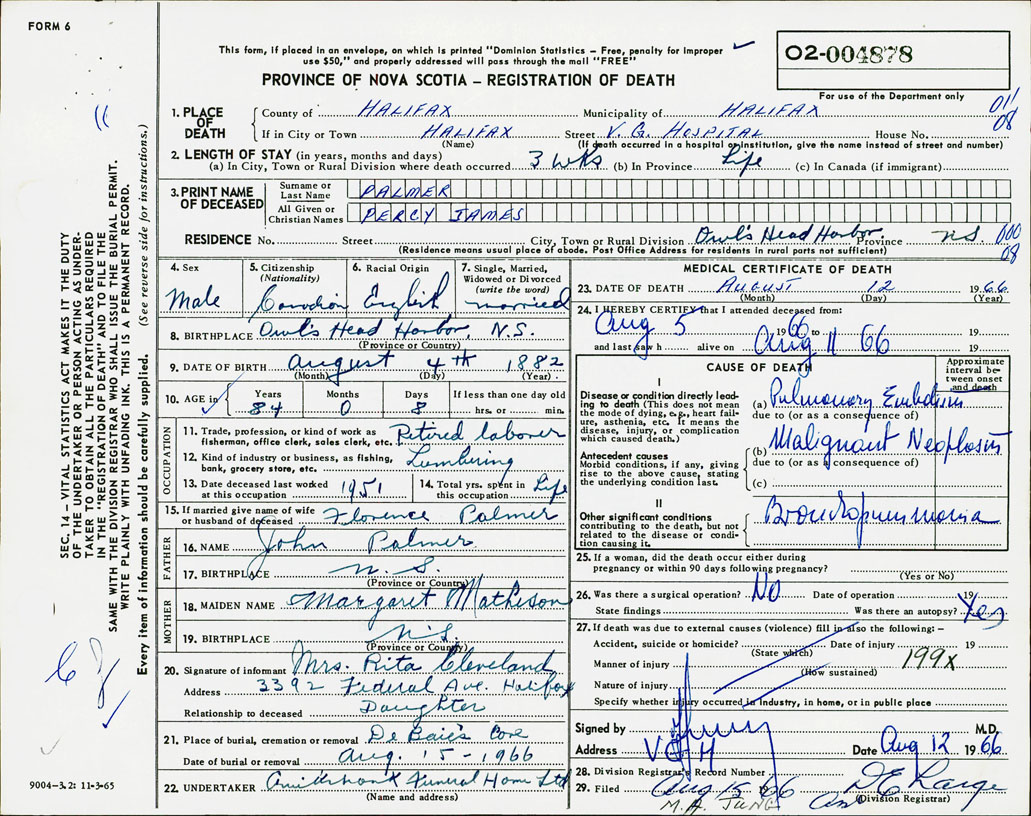 FORM 6
This form, if placed in an envelope, on which is printed "Dominion Statistics – Free, penalty for improper
use $50," and properly addressed will pass through the mail "FREE"
PROVINCE OF NOVA SCOTIA – REGISTRATION OF DEATH
O2-004878
For use of the Department only
1. PLACE OF DEATH County of HALIFAX Municipality of HALIFAX 011
If in City or Town HALIFAX Street V. G. HOSPITAL House No. 08
(Name) (If death occurred in a hospital or institution, give the name instead of street and number)
2. LENGTH OF STAY (in years, months and days)
(a) In City, Town or Rural Division where death occurred 3 wks (b) In Province Life (c) In Canada (if immigrant)
3. PRINT NAME OF DECEASED Surname or Last Name PALMER
All Given or Christian Names PERCY JAMES
RESIDENCE No. Street City, Town or Rural Division Owl's Head Harbor Province N.S. 000
(Residence means usual place of abode. Post Office Address for residents in rural parts not sufficient) 08
4. Sex Male
5. Citizenship (Nationality) Canadian
6. Racial Origin English
7. Single, Married, Widowed or Divorced (write the word) married
8. BIRTHPLACE Owl's Head Harbor, N.S.
(Province or Country)
9. DATE OF BIRTH August 4th 1882
(Month) (Day) (Year)
10. AGE in Years 84 Months 0 Days 8 If less than one day old hrs. or min.
OCCUPATION
11. Trade, profession, or kind of work as fisherman, office clerk, sales clerk, etc. Retired laborer
12. Kind of industry or business, as fishing, bank, grocery store, etc. Lumbering
13. Date deceased last worked at this occupation 1951
14. Total yrs. spent in this occupation Life
15. If married give name of wife or husband of deceased Florence Palmer
FATHER
16. NAME John Palmer
17. BIRTHPLACE N.S.
(Province or Country)
MOTHER
18. MAIDEN NAME Margaret Matheson
19. BIRTHPLACE N.S.
(Province or Country)
20. Signature of informant Mrs. Rita Cleveland
Address 3392 Federal Ave. Halifax
Relationship to deceased Daughter
21. Place of burial, cremation or removal De Baie's Cove
Date of burial or removal Aug. 15 - 1966
22. UNDERTAKER Cruikshank Funeral Home Ltd
(Name and address)
MEDICAL CERTIFICATE OF DEATH
23. DATE OF DEATH August 12 1966
(Month) (Day) (Year)
24. I HEREBY CERTIFY that I attended deceased from:
Aug 5 1966 to 19
and last saw h alive on Aug 11 66 19
CAUSE OF DEATH
Approximate interval between onset and death
I
Disease or condition directly leading to death (This does not mean the mode of dying, e.g., heart failure, asthenia, etc. It means the disease, injury, or complication which caused death.)
(a) Pulmonary Embolism
due to (or as a consequence of)
Antecedent causes
Morbid conditions, if any, giving rise to the above cause, stating the underlying condition last.
(b) Malignant Neoplasm
due to (or as a consequence of)
(c)
II
Other significant conditions contributing to the death, but not related to the disease or condition causing it.
Bronchopneumonia
25. If a woman, did the death occur either during
pregnancy or within 90 days following pregnancy?
(Yes or No)
26. Was there a surgical operation? No Date of operation 19
State findings Was there an autopsy? Yes
27. If death was due to external causes (violence) fill in also the following: –
Accident, suicide or homicide? Date of injury 19
(State which)
Manner of injury 199X
(How sustained)
Nature of injury
Specify whether injury occurred in industry, in home, or in public place
Signed by M.D.
Address V G H Date Aug 12 1966
28. Division Registrar's Record Number
29. Filed Aug 15 1966 D E Large
M.A. JUNG (Division Registrar)
SEC. 14 – VITAL STATISTICS ACT MAKES IT THE DUTY
OF THE UNDERTAKER OR PERSON ACTING AS UNDER-
TAKER TO OBTAIN ALL THE PARTICULARS REQUIRED
IN THE "REGISTRATION OF DEATH" AND TO FILE THE
SAME WITH THE DIVISION REGISTRAR WHO SHALL ISSUE THE BURIAL PERMIT.
WRITE PLAINLY WITH UNFADING INK. THIS IS A PERMANENT RECORD.
Every item of information should be carefully supplied. (See reverse side for instructions.)
9004-3.2: 11-3-65